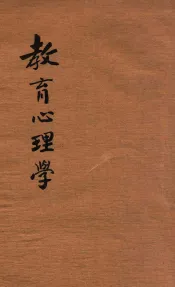 教育心理學